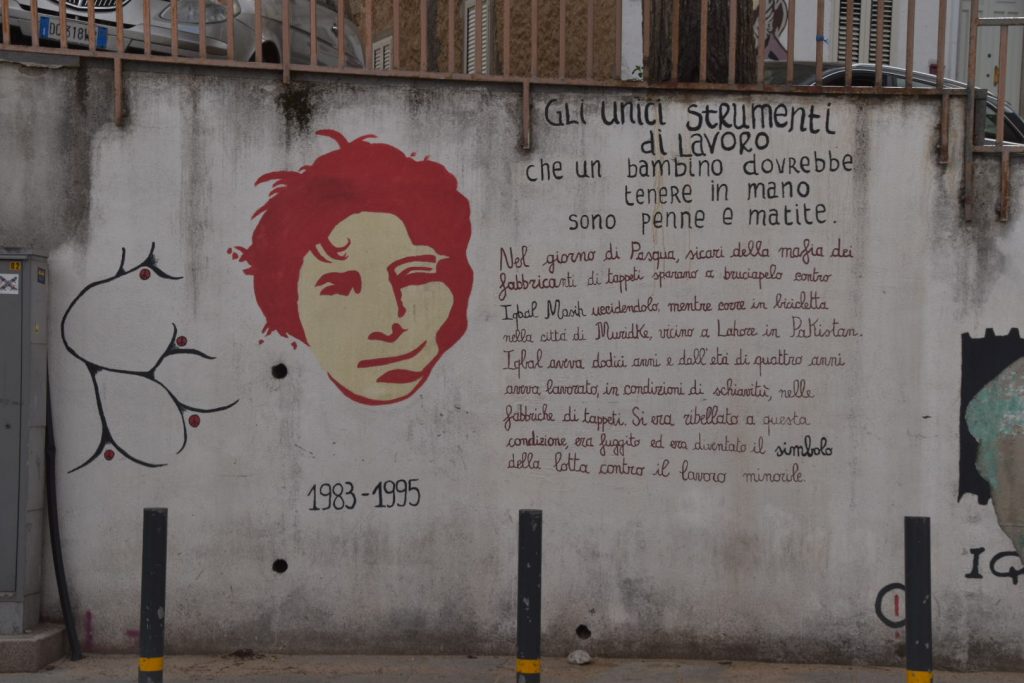 GLI UNICI STRUMENTI
di LAVORO
che un bambino dovrebbe
tenere in mano
sono penne e matite.
Nel giorno di Pasqua, sicari della mafia dei
fabbricanti di tappeti sparano a bruciapelo contro
Iqbal Masih uccidendolo, mentre corre in bicicletta
nella città di Muridke, vicino a Lahore in Pakistan.
Iqbal aveva dodici anni e dall'età di quattro anni
aveva lavorato, in condizioni di schiavitù, nelle
fabbriche di tappeti. Si era ribellato a questa
condizione, era fuggito ed era diventato il simbolo
della lotta contro il lavoro minorile.
1983-1995
IQ